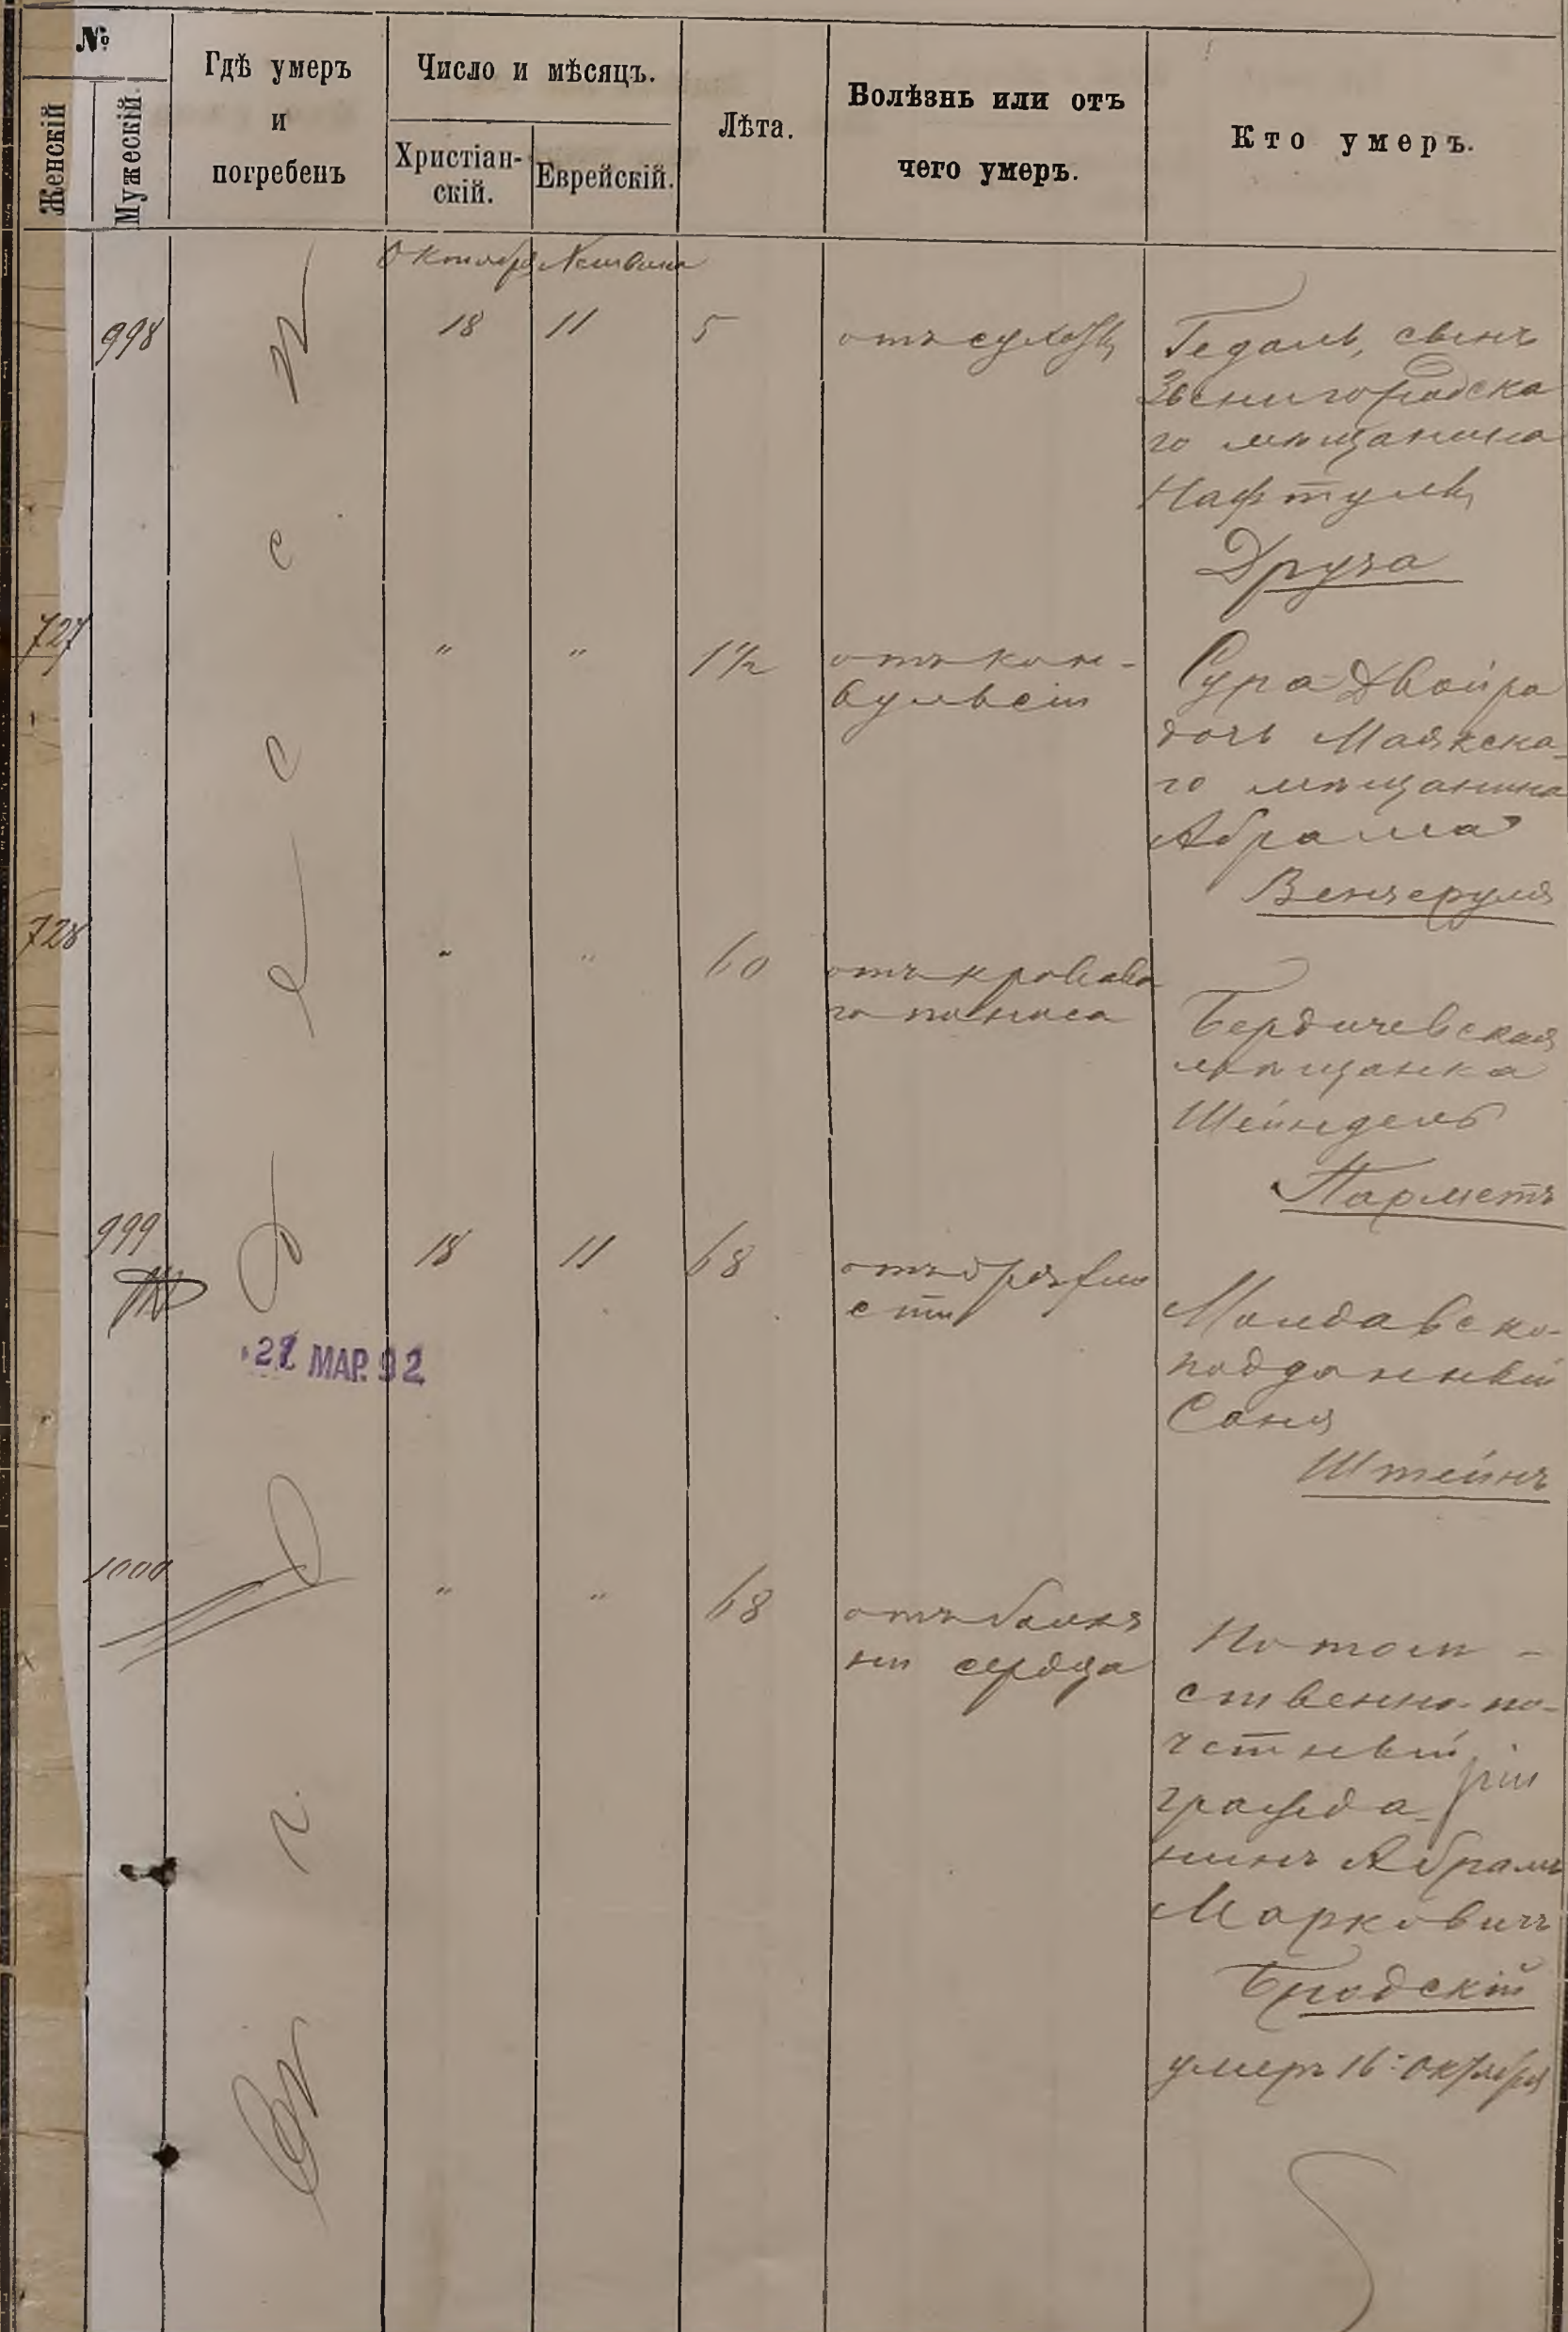 №
Женскій
Мужескій.
Гдѣ умеръ
и
погребенъ
Число и мѣсяцъ.
Христіан-
скій.
Еврейскій.
Лѣта.
Болѣзнь или отъ
чего умеръ.
Кто умеръ.
Октября Хешвана
998 18 11 5
Гедаль, сынъ
Звенигородска
го мѣщанина
Нафтулы
Друза
727 " " 1½
отъ кон-
вульсіи
Сура-Двойра
дочь Маякска-
го мѣщанина
Абрама
Венгеруля
728 " " 60
отъ кровава
го поноса
Бердичевская
мѣщанка
Шейндель
Парметъ
999 18 11 68
отъ дряхло
сти
Молдавско-
подданный
Саня
Штейнъ
1000 " " 68
отъ болѣз
ни сердца
Потом-
ственно-по-
четный
гражда-
нинъ Абрамъ
Марковичъ
Бродскій
умеръ 16-октября
въ г. Одессѣ
МАР. 92